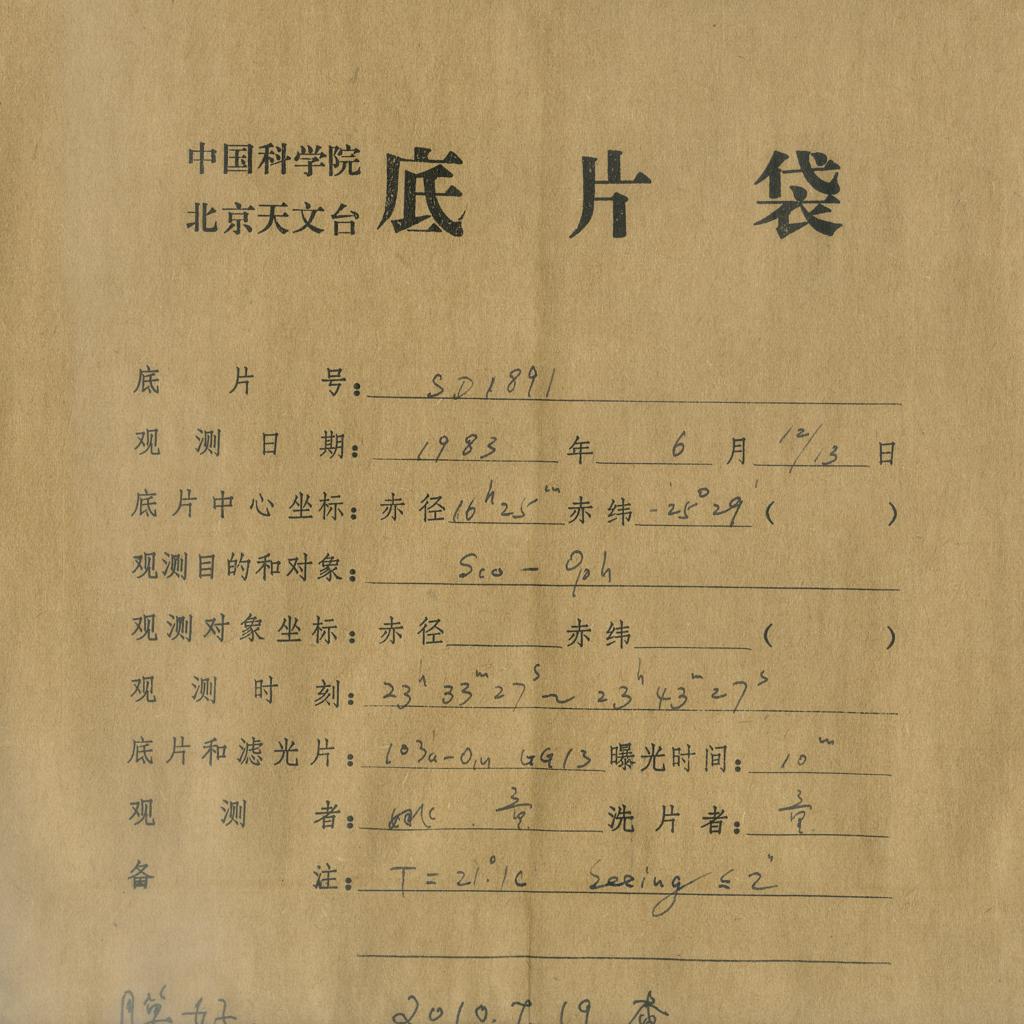 中国科学院
北京天文台
底片袋
底片号: SD1891
观测日期: 1983年 6月 12/13日
底片中心坐标: 赤径 16h25m 赤纬 -25°29′ ( )
观测目的和对象: Sco - Oph
观测对象坐标: 赤径 赤纬 ( )
观测时刻: 23h 33m 27s ~ 23h 43m 27s
底片和滤光片: 103a-O, GG13 曝光时间: 10m
观测者: 姚 童 洗片者: 童
备注: T = 21°.1C Seeing ≤ 2"
2010.7.19